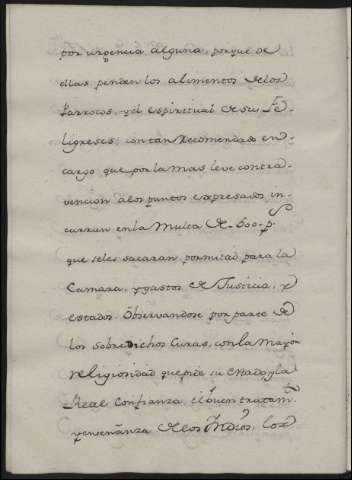 por urgencia alguna, porque de
ellas penden los alimentos de los
Parrocos, y el espiritual de sus Fe-
ligreses; con tan Recomendado en-
cargo que por la mas leve contra-
vencion a los puntos expresados in-
curran en la Multa de 600 p.s
que se les sacaran por mitad para la
Camara, y gastos de Justicia, y
estados. Observandose por parte de
los sobre dichos Curas, con la mayor
religiosidad que pide su estado, y la
Real Confianza, el buen tratam.to
y enseñanza de los Indios, los